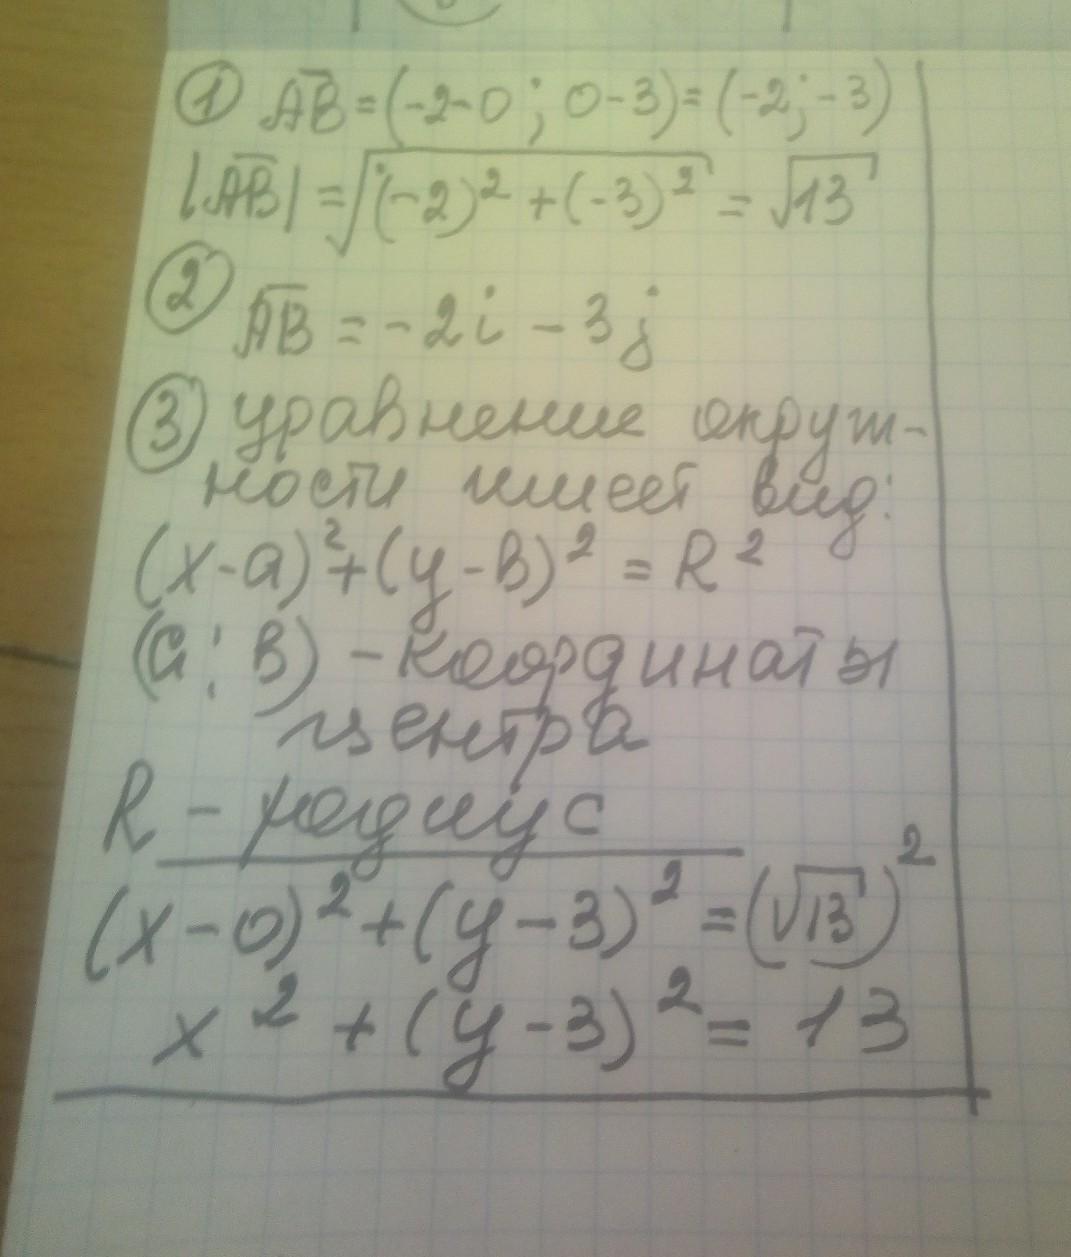 ① A̅B̅ = (-2-0; 0-3) = (-2; -3)
|A̅B̅| = √((-2)² + (-3)²) = √13
② A̅B̅ = -2i - 3j
③ уравнение окруж-
ности имеет вид:
(x-a)² + (y-b)² = R²
(a; b) - координаты
центра
R - радиус
(x-0)² + (y-3)² = (√13)²
x² + (y-3)² = 13